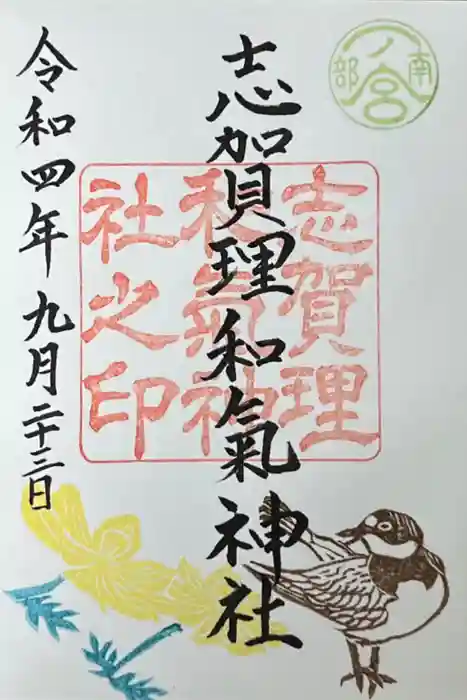 南
ノ宮
部
志賀理和氣神社
志賀理
和氣神
社之印
令和四年九月二十三日